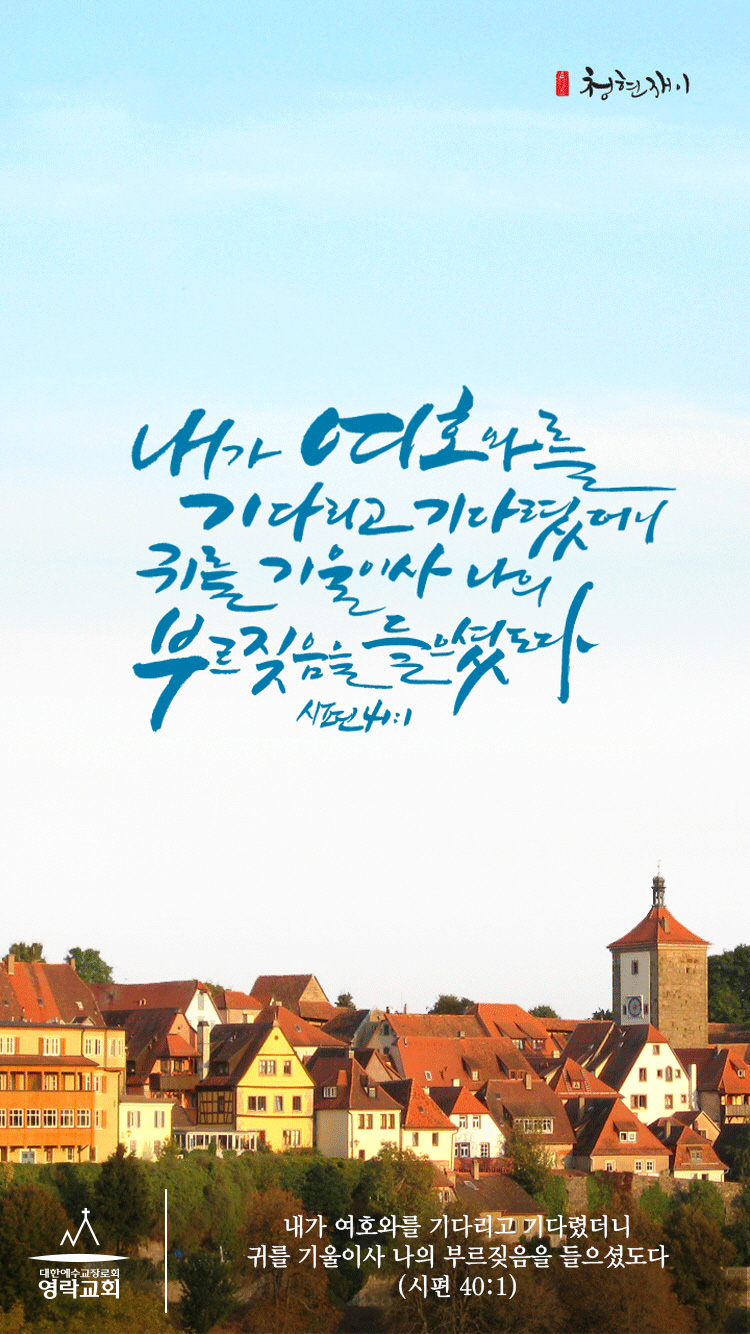 청현재이
내가 여호와를
기다리고 기다렸더니
귀를 기울이사 나의
부르짖음을 들으셨도다
시편 40:1
대한예수교장로회
영락교회
내가 여호와를 기다리고 기다렸더니
귀를 기울이사 나의 부르짖음을 들으셨도다
(시편 40:1)